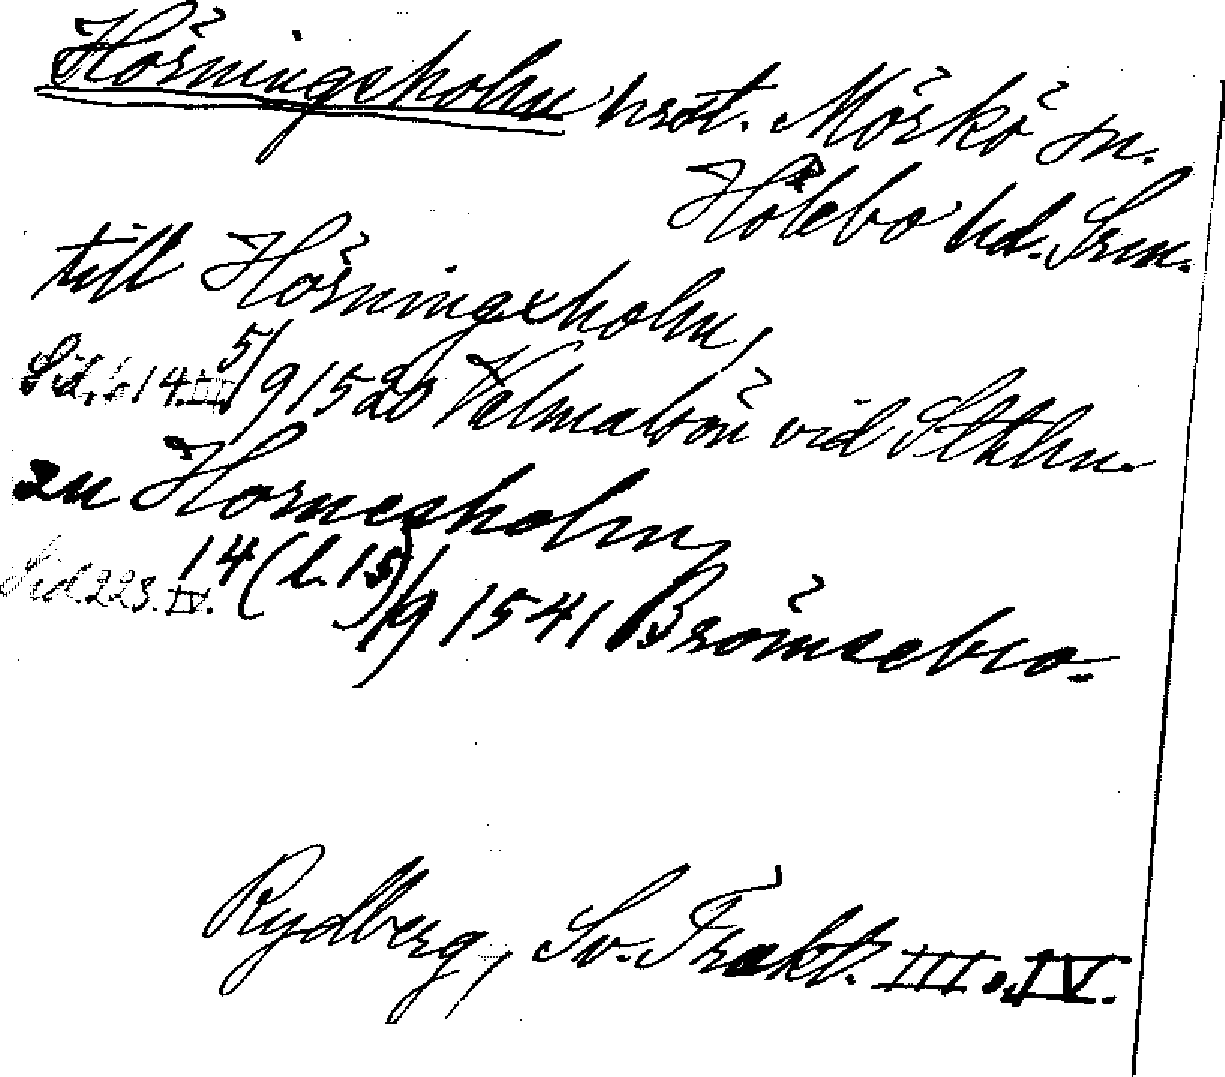 Hörningsholm hrst. Mörkö sn.
Hölebo hd. Srm.
till Hörningxholm,
Sid. 614.III. 5/9 1520 Valmalsön vid Sthlm.
zu Hornesholm,
Sid. 223. IV. 14 (l. 15)/9 1541 Brömsebro.
Rydberg, Sv. Trakt. III o. IV.